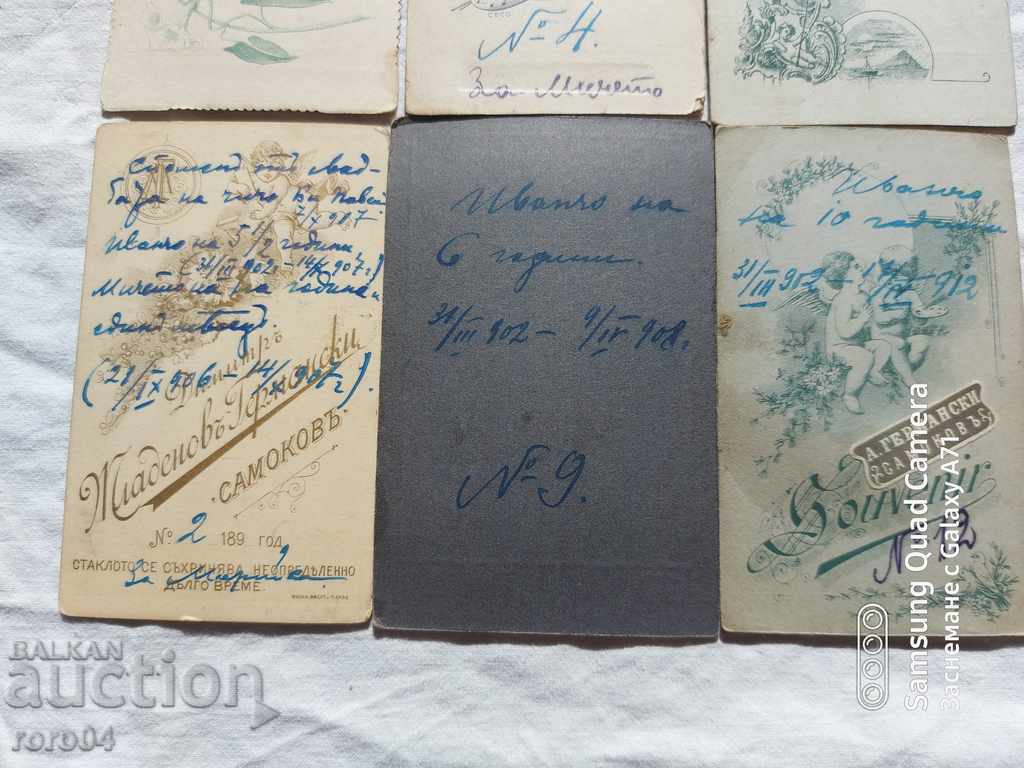 № 4.
За Мичето
Споменъ отъ
на чичо
1907.
Иванчо на 5 1/2 години
(31/III 902 – 14/X 907 г.)
Мичето на година и
единъ месецъ.
(21/IX 906 – 14/X 907 г.).
Димитръ
Младеновъ Германски
САМОКОВЪ.
№ 2 189 год.
СТАКЛОТО СЕ СЪХРИНЯВА НЕОПРЕДѢЛЕННО
ДЪЛГО ВРЕМЕ.
За Марийка.
Иванчо на
6 години.
31/III 902 – 9/IV 908 г.
№ 9.
Иванчо
на 10 години
31/III 902 – 912
А. ГЕРМАНСКИ
САМОКОВЪ
Souvenir
№ 12
BALKAN
auction
roro04
Samsung Quad Camera
Заснемане с Galaxy A71